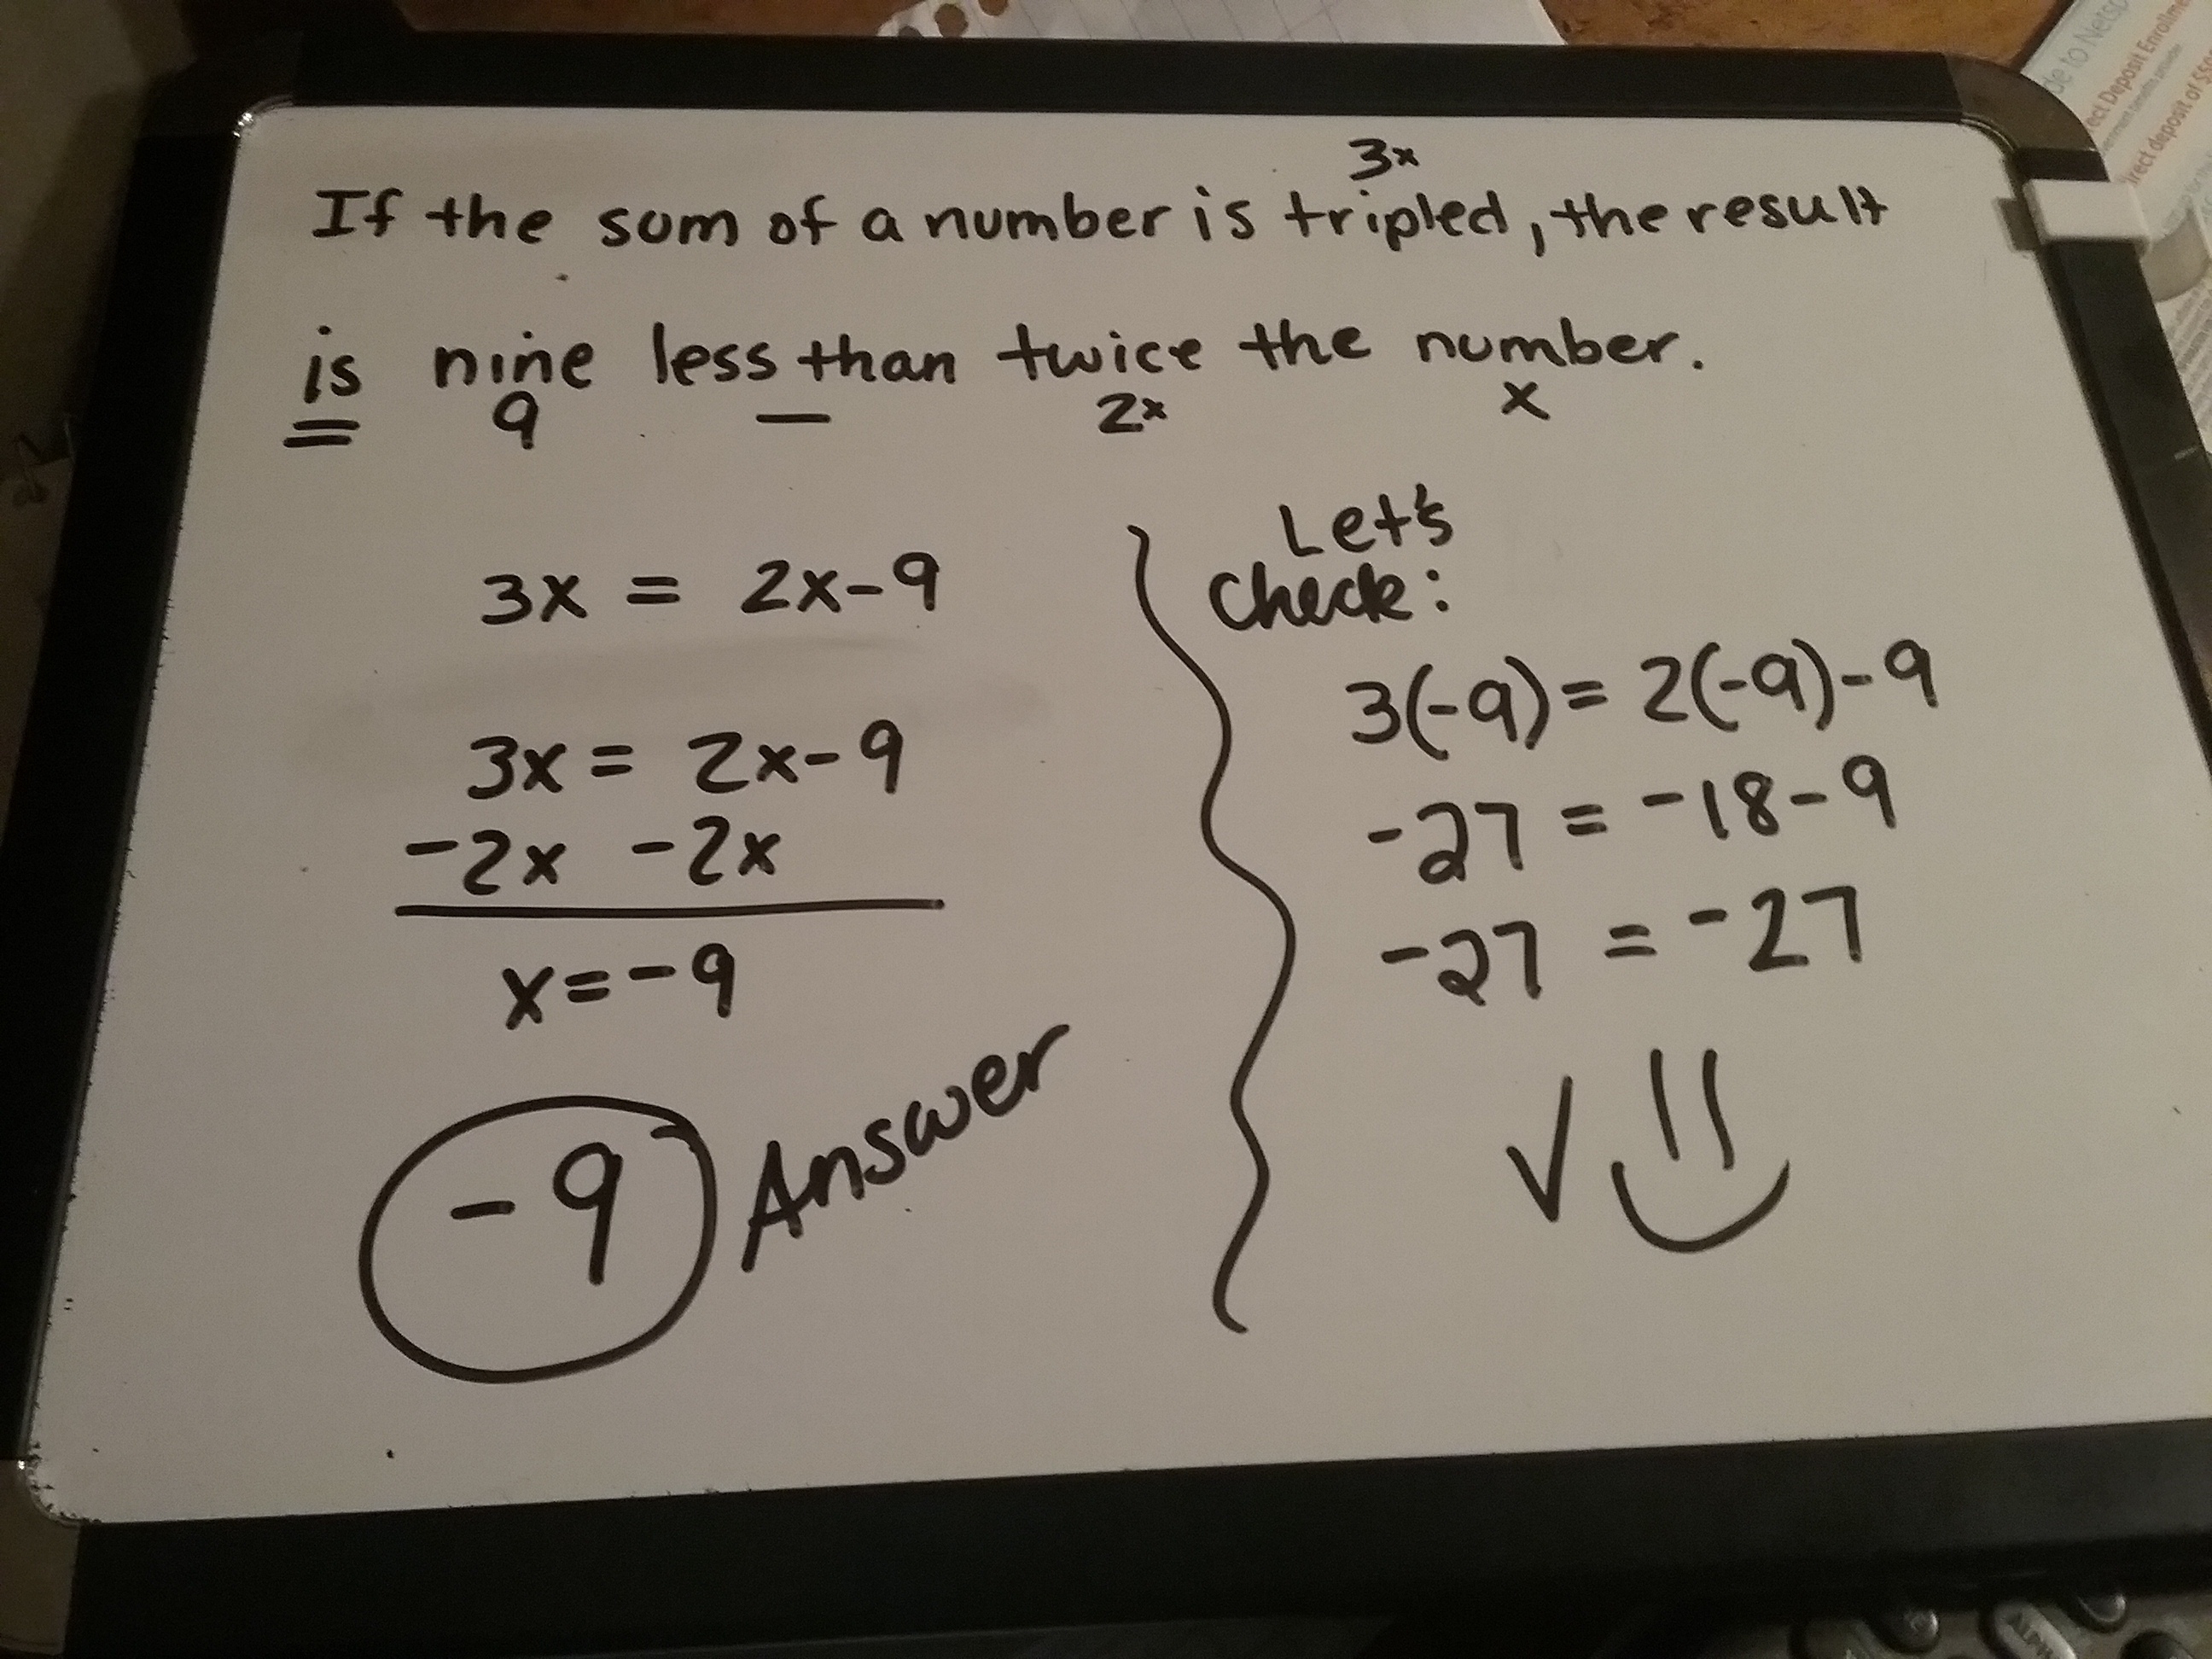 3x
If the sum of a number is tripled, the result
is nine less than twice the number.
= 9 — 2x x
3x = 2x-9
3x = 2x-9
-2x -2x
x=-9
-9 Answer
Let's
Check:
3(-9)= 2(-9)-9
-27 = -18-9
-27 = -27
✓
de to Netsp
ect Deposit Enrollme
irect deposit of $50